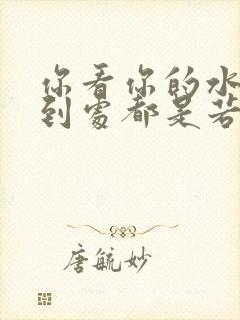 你看你的水
到處都是若
唐毓妙